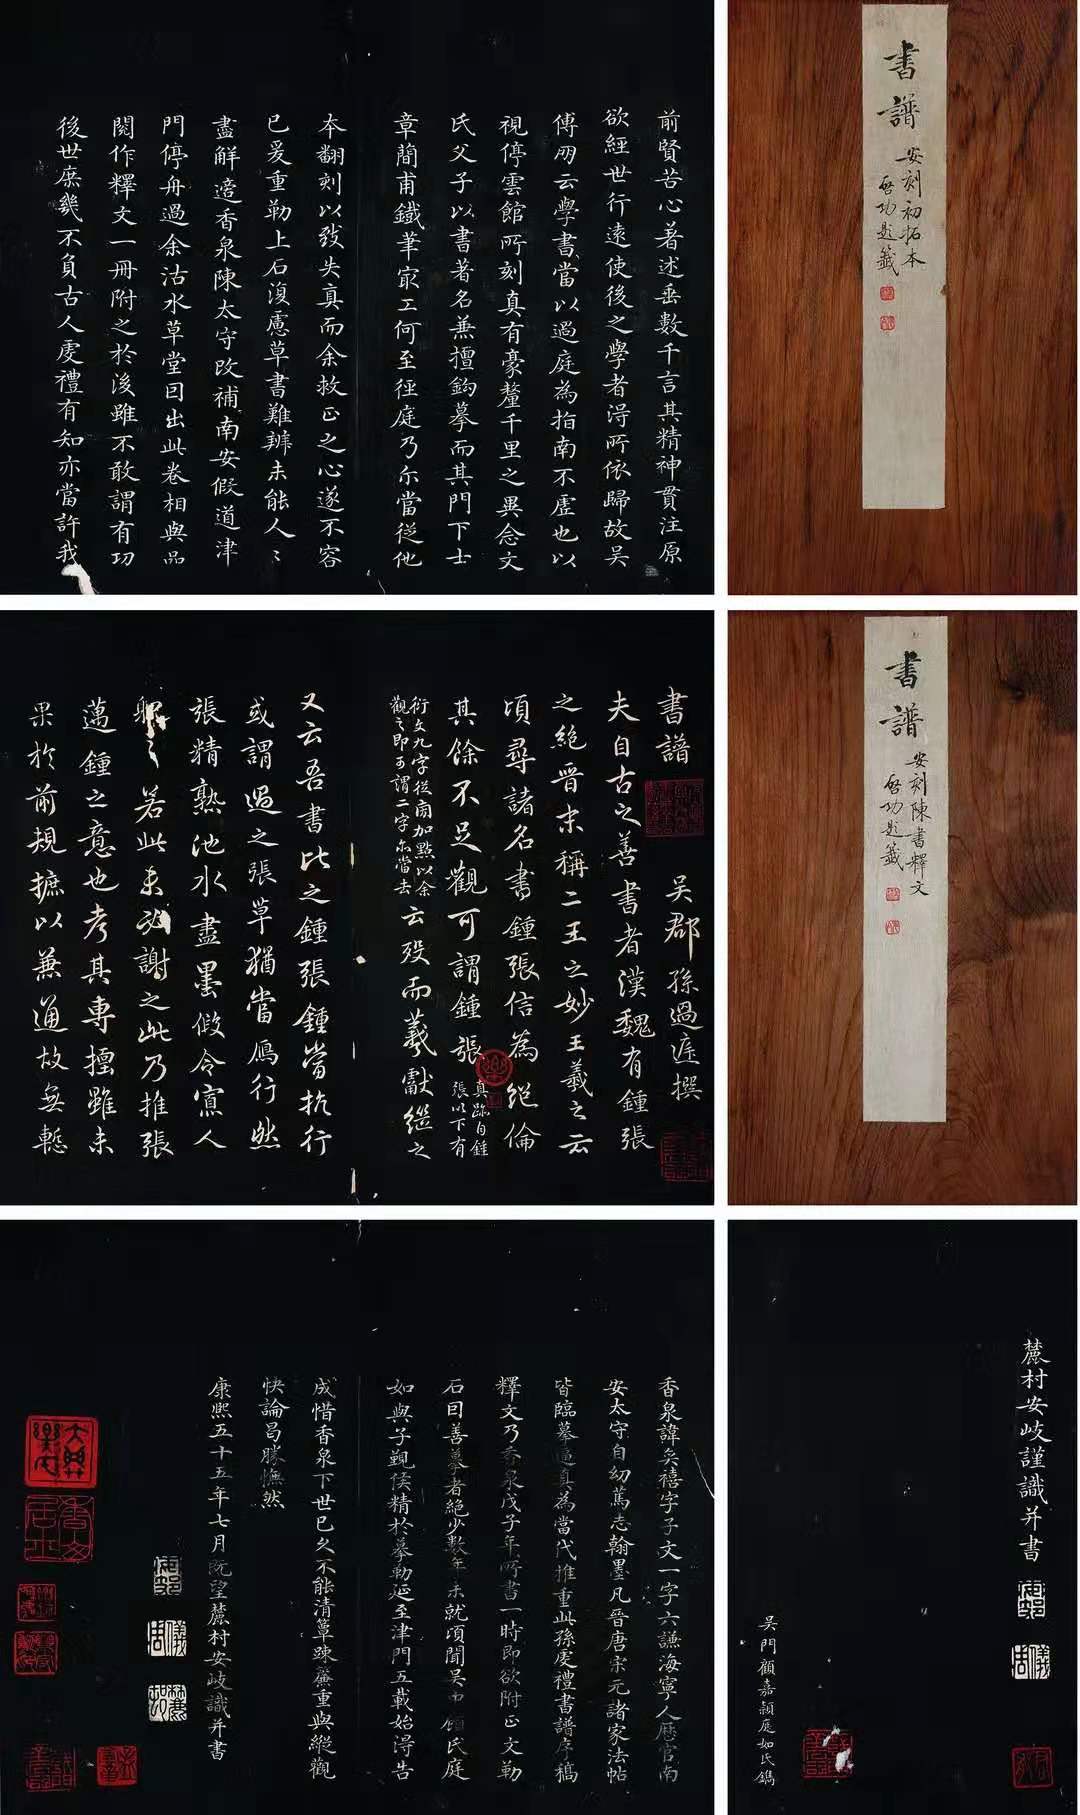 前賢苦心著述垂數千言其精神貫注原
欲經世行遠使後之學者得所依歸故吳
傅朋云學書當以過庭為指南不虛也以
視停雲館所刻真有豪釐千里之異念文
氏父子以書著名兼擅鉤摹而其門下士
章簡甫鐵筆家工何至徑庭乃尒當從他
本翻刻以致失真而余救正之心遂不容
已爰重勒上石復慮草書難辨未能人〻
盡解適香泉陳太守改補南安假道津
門停舟過余沽水草堂因出此卷相與品
閱作釋文一冊附之於後雖不敢謂有功
後世庶幾不負古人虔禮有知亦當許我
書譜
安刻初拓本
啓功題籤
書譜 吳郡孫過庭撰
夫自古之善書者漢魏有鍾張
之絕晉末稱二王之妙王羲之云
頃尋諸名書鍾張信為絕倫
其餘不足觀可謂鍾張
真跡自鍾
張以下有
衍文九字從旁加點以余
觀之即可謂二字亦當去
云歿而羲獻繼之
又云吾書比之鍾張鍾當抗行
或謂過之張草猶當鴈行然
張精熟池水盡墨假令寡人
躭之若此未必謝之此乃推張
邁鍾之意也考其專擅雖未
果於前規摭以兼通故無慙
書譜
安刻陳書釋文
啓功題籤
香泉諱奕禧字子文一字六謙海寧人歷官南
安太守自幼篤志翰墨凡晉唐宋元諸家法帖
皆臨摹逼真為當代推重此孫虔禮書譜序稿
釋文乃香泉戊子年所書一時即欲附正文勒
石因善摹者絕少數年未就頃聞吳中顧氏庭
如與子覲侯精於摹勒延至津門五載始得告
成惜香泉下世已久不能清簟疎簾重與縱觀
快論曷勝憮然
康熙五十五年七月既望麓村安岐識并書
麓村安岐謹識并書
吳門顧嘉穎庭如氏鐫